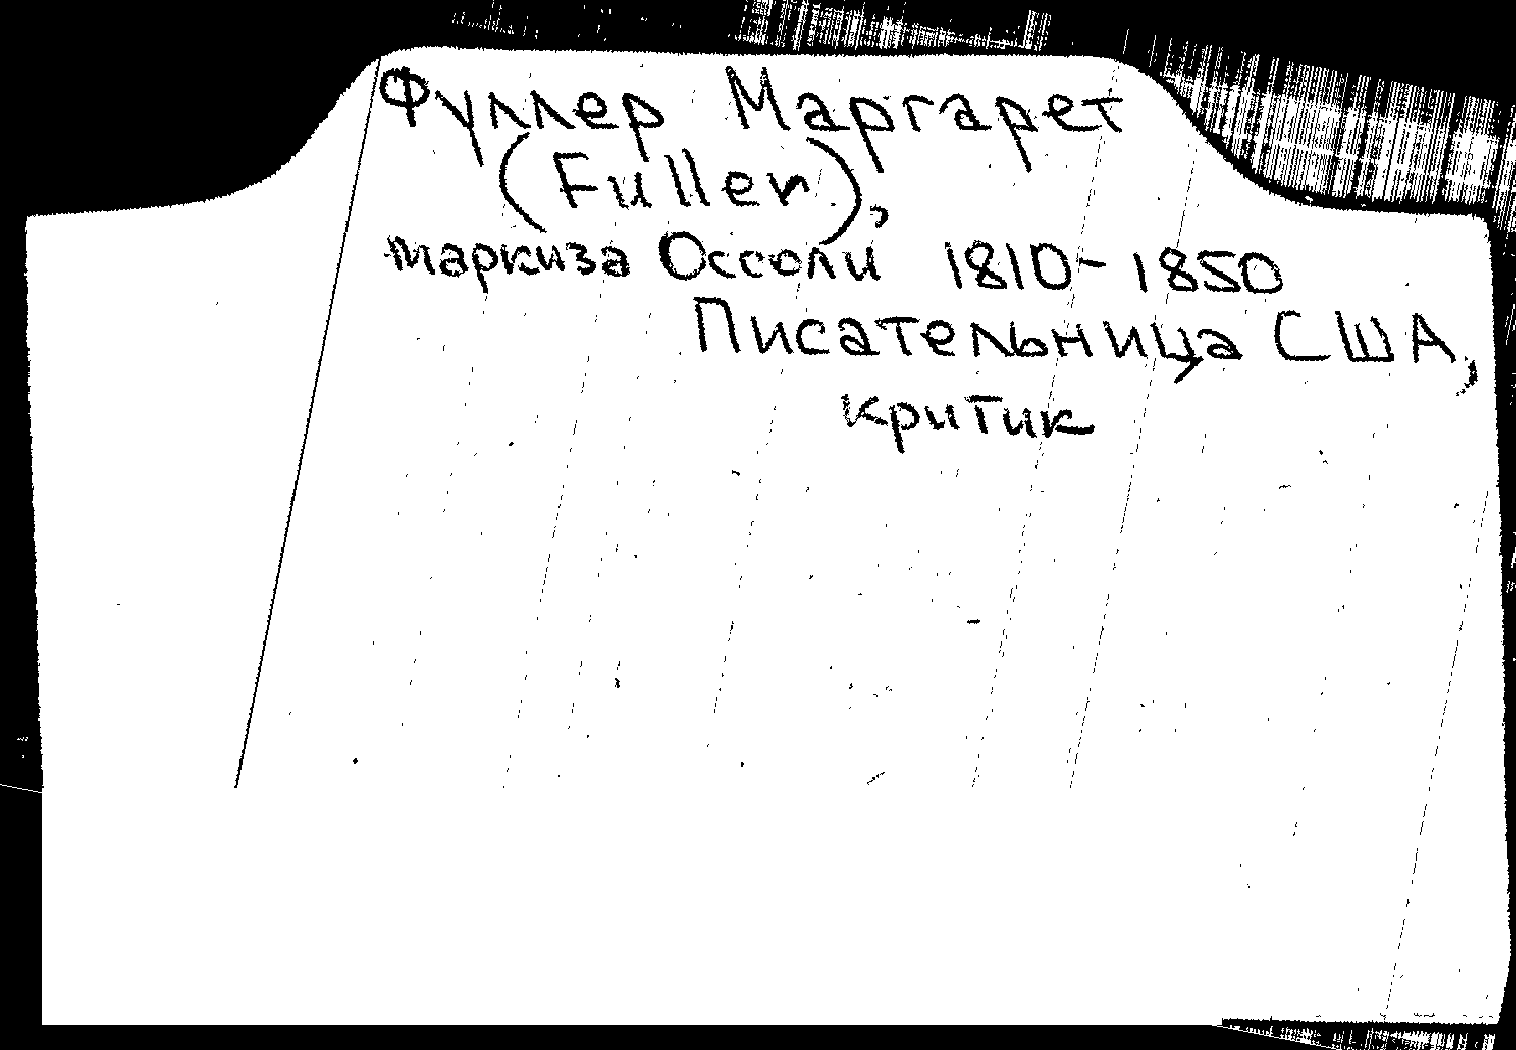 Фуллер Маргарет
(Fuller),
маркиза Оссоли 1810-1850
Писательница США,
критик